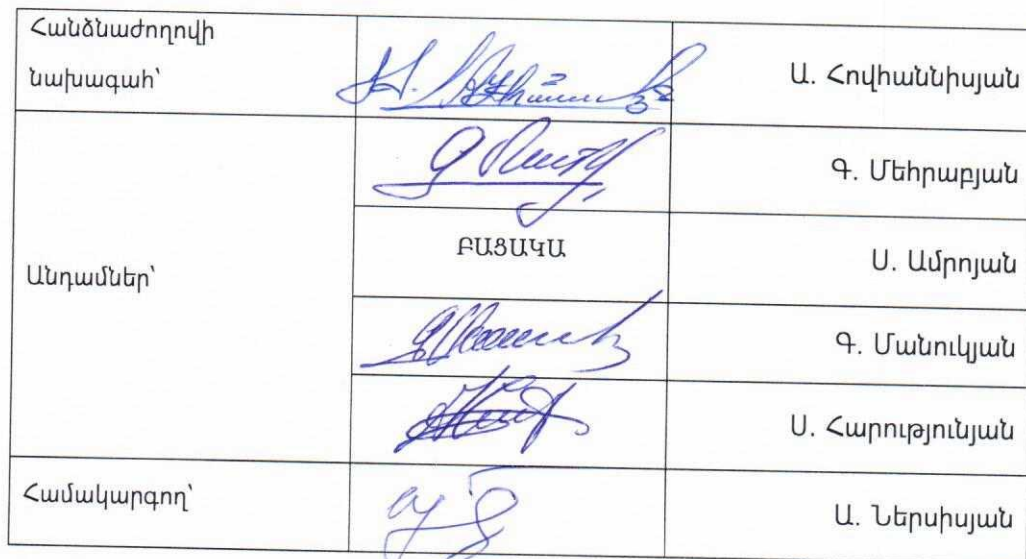 Հանձնաժողովի
նախագահ՝
Ա. Հովհաննիսյան
Գ. Մեհրաբյան
Անդամներ՝
ԲԱՑԱԿԱ
Ս. Ամրոյան
Գ. Մանուկյան
Ս. Հարությունյան
Համակարգող՝
Ա. Ներսիսյան